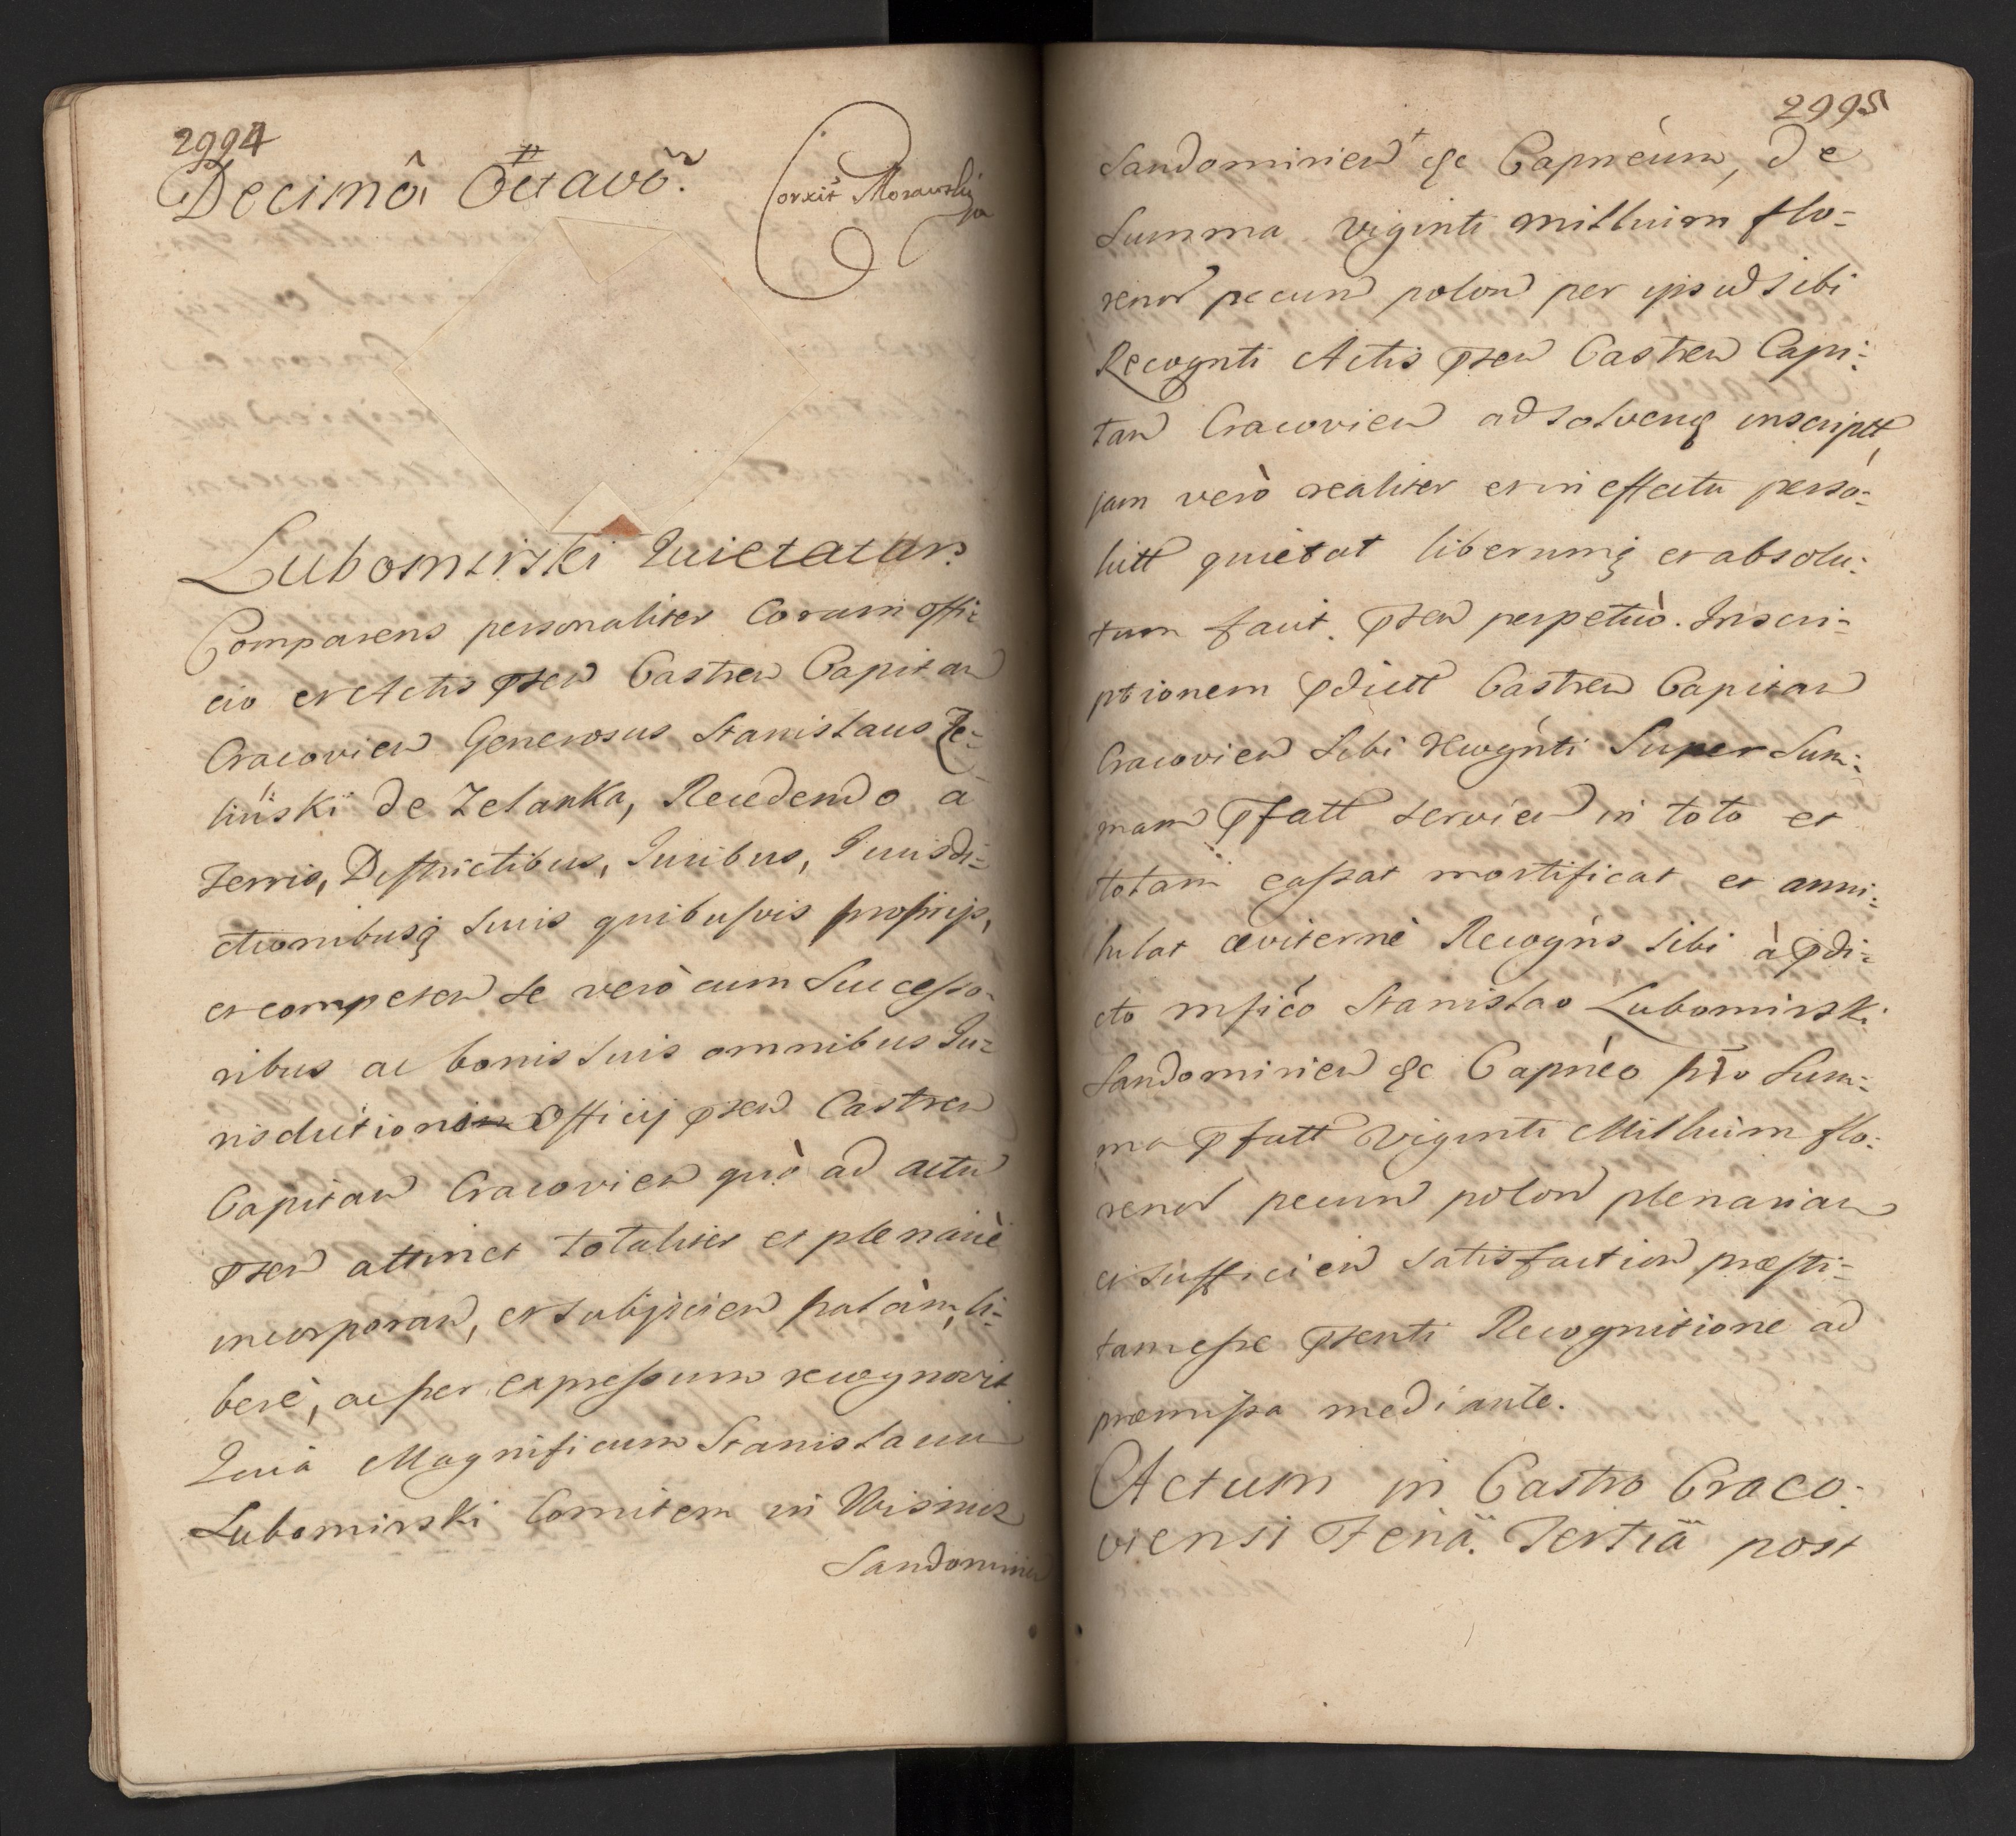 2994
Decimâ Octavô.
Corxit Morawski
Lubomirski Quietatur.
Comparens personaliter Coram offi=
cio et Actis pñten Castren Capitan
Cracovien Generosus Stanislaus Ze=
liński de Zelanka, Recedendo a
Terris, Districtibus, Juribus, Jurisdi=
ctionibusq suis quibusvis proprijs,
et competen se verò cum Successo=
ribus ac bonis suis omnibus Ju=
risdictioni Officij pñten Castren
Capitan Cracovien quò ad actũ
pñten attinet totaliter et plenariè
incorporan, et subijicien palàm, li=
berè, ac per expressum recognovit.
Quià Magnificum Stanislaum
Lubomirski Comitem in Wisnicz
Sandomirien
2995
Sandomirien &c Capneum, de
Summa viginti millium flo=
renor pecun polon per ipsũ sibi
Recognti Actis pñten Castren Capi=
tan Cracovien ad solvenq inscriptt,
jam verò realiter et in effectu perso=
lutt quietat liberumq et absolu=
tum facit. pñten perpetuò. Inscri=
ptionem pdictt Castren Capitan
Cracovien Sibi Recognti Super Sum=
mam pfatt servien in toto et
totam cassat mortificat et anni=
hilat æviternè Recogns sibi à pdi=
cto mfico Stanislao Lubomirski
Sandomirien &c Capneo pro Sum=
ma pfatt Viginti Millium flo=
renor pecun polon plenariam
et sufficien satisfaction præsti=
tam esse pñtenti Recognitione ad
præmissa mediante.
Actum in Castro Craco=
viensi Feriâ Tertiâ post